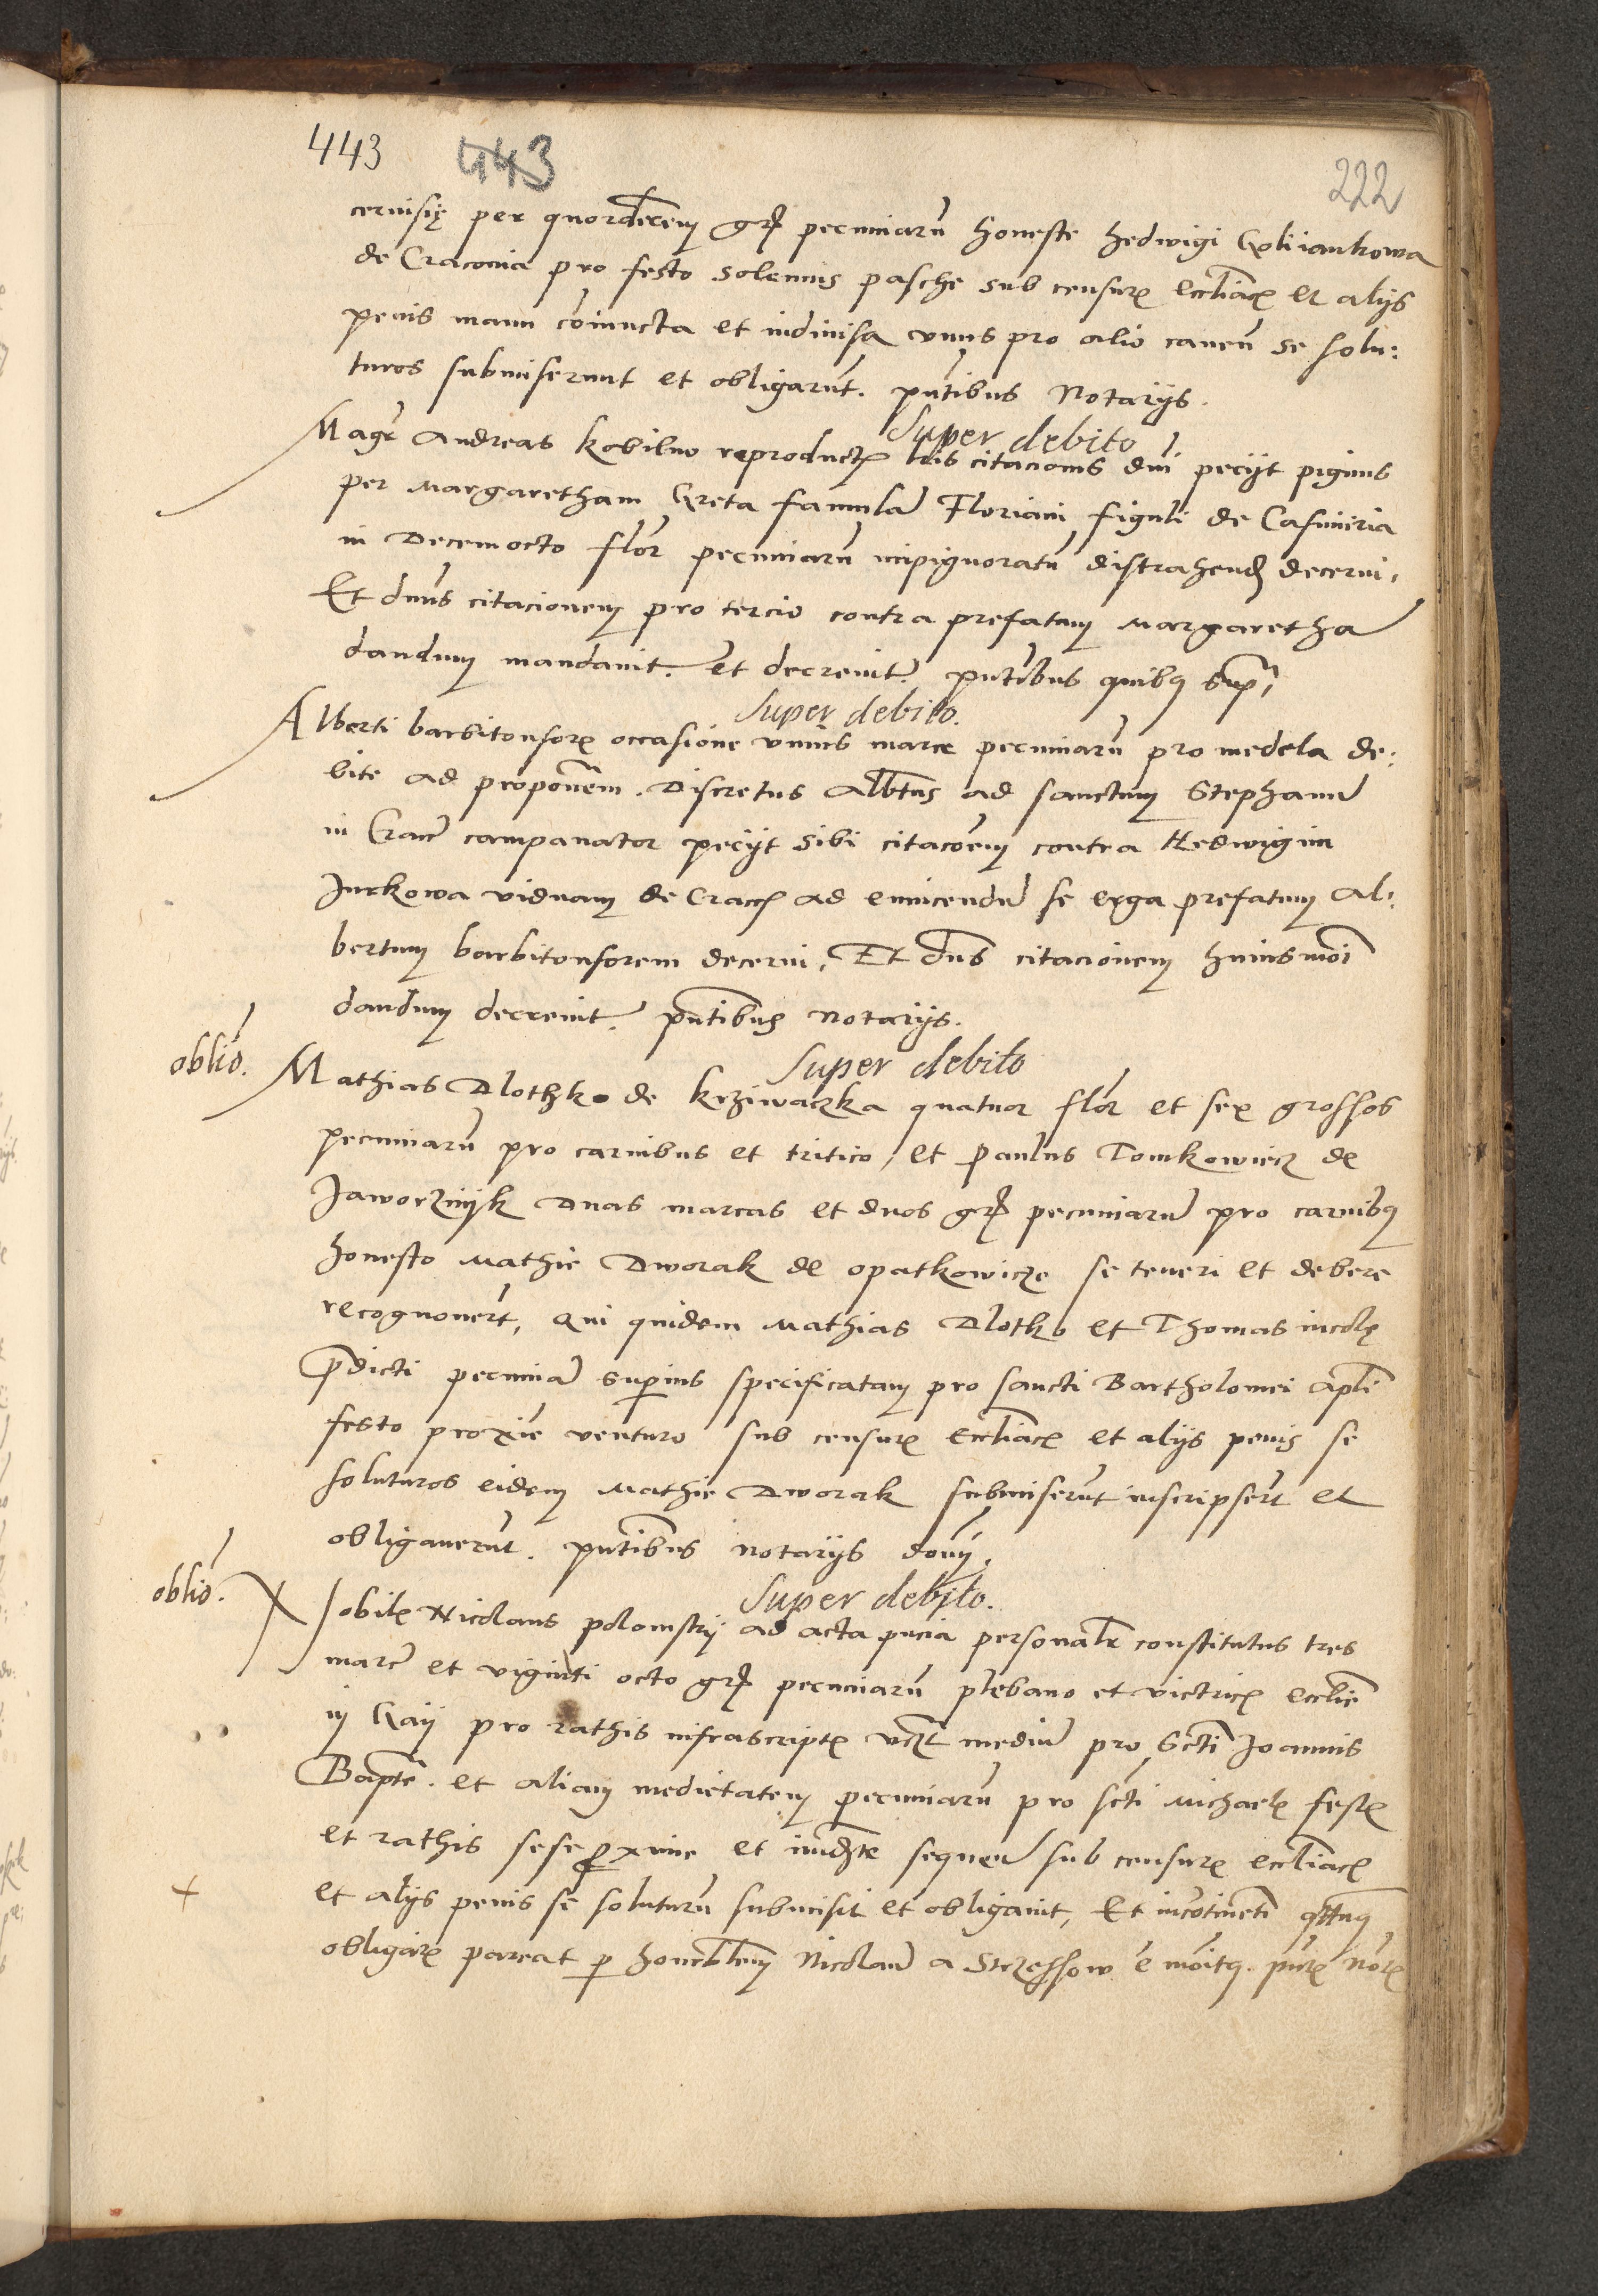 443 443 222
cervisię per quordecem grͦ pecuniarū honeste Hedwigi Goliankowa
de Cracovia pro festo solennis pasche sub censurʒ eccliacʒ et alijs
penis manu coniuncta et indivisa unus pro alio caven̄ se solu:
turos submiserunt et obligarūt. pn̄tibus Notarijs.
Super debito
Magr̄ Andreas Kobilno reproductʒ lris citacionis dni peciit pignus
per Margaretham Greta famulā Floriani figuli de Casimiria
in Decemocto flor pecuniarū impignoratū distrahendʒ decerni,
Et dnus citacionem pro tercio contra prefatam Margarethā
dandum mandavit. et decrevit. pn̄tibus quibus supra
Super debito.
Alberti barbitonsorʒ occasione unius marce pecuniarū pro medela de:
bite ad proponēm. Discretus Albtus ad sanctum Stephanū
in Crac campanator peciit sibi citacōem contra Hedwigim
Jurkowa viduam de Cracʒ ad evincendū se erga prefatum Al:
bertum barbitonsorem decerni, Et dns citacionem huiusmōi
dandum decrevit. pn̄tibus notarijs.
oblio.
Super debito
Mathias Dlothko de Krziwaczka quatuor flor et sex grossos
pecuniarū pro carnibus et tritico, et Paulus Tomkowicz de
Jaworznijk Duas marcas et duos grͦ pecuniarū pro carnibus
honesto Mathie Dworak de Opatkowicze se teneri et debere
recognovert, Qui quidem Mathias Dlotko et Thomas incolę
p̄dicti pecuniā superius specificatam pro sancti Bartholomei apli
festo proxīe venturo sub censurʒ eccliacʒ et alijs penis se
soluturos eidem Mathie Dworak submiserūt inscripserūt et
obligaverūt. pn̄tibus notarijs
oblio.
Super debito.
Nobilʒ Nicolaus polomskij ad acta pn̄cia personalr constitutus tres
marc et viginti octo grͦ pecuniarū plebano et victricʒ ecclie
in Gaij pro rathis infrascriptʒ vcʒt mediū pro Scti Joannis
Bapte. et aliam medietatem pecuniarū pro scti Michaelʒ festʒ
et rathis sese proxime et imēdte sequeñ sub censurʒ eccliacʒ
et alijs penis se soluturū submisit et obligavit, Et incōtinēti
obligarʒ pareat p honorblem Nicolaū a Strzessow